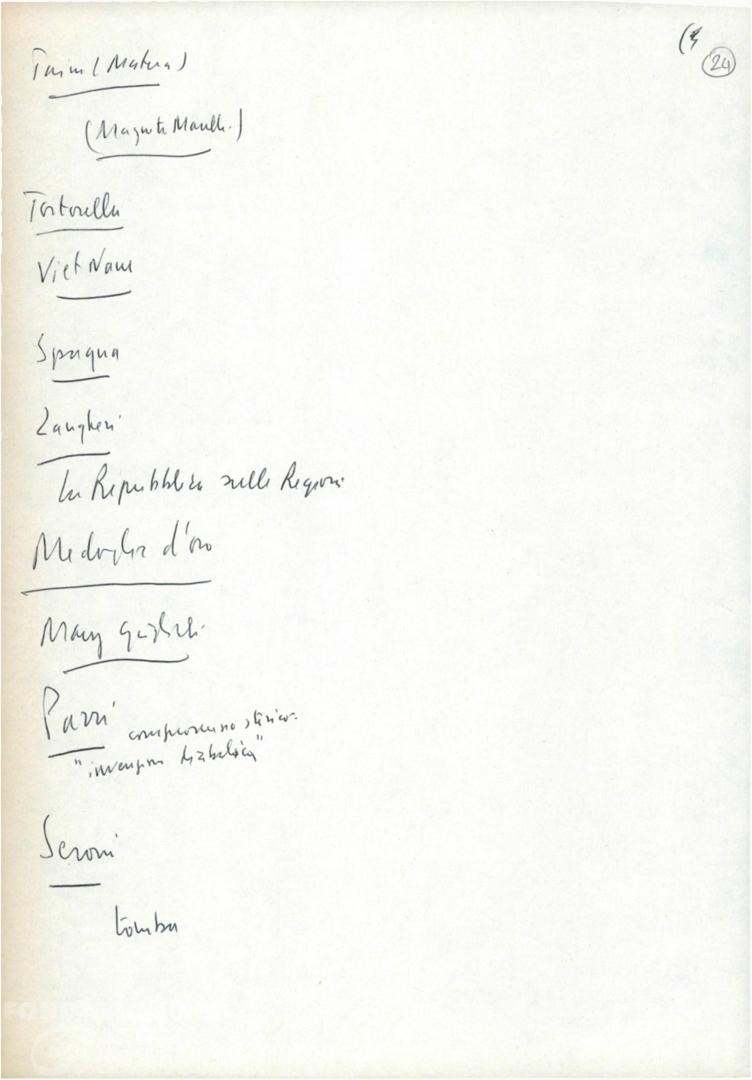 (3
24
(Matera)
Tortorella
Viet Nam
Spagna
Zangheri
La Repubblica sulle Regioni
Medaglie d'oro
Mary
Parri compromesso storico
"invenzione diabolica"
Seroni
tomba